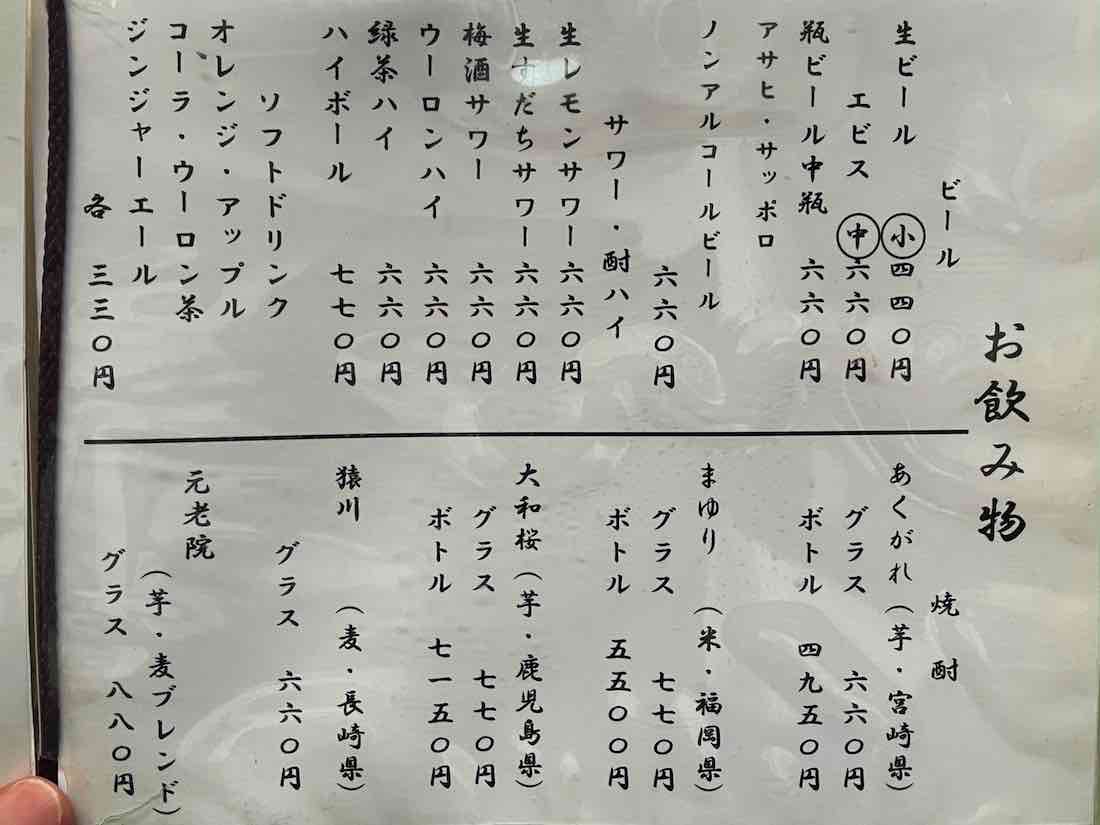 お飲み物
ビール
生ビール ㊙小 四四〇円
エビス ㊥ 六六〇円
瓶ビール中瓶 六六〇円
アサヒ・サッポロ
ノンアルコールビール
六六〇円
サワー・酎ハイ
生レモンサワー 六六〇円
生すだちサワー 六六〇円
梅酒サワー 六六〇円
ウーロンハイ 六六〇円
緑茶ハイ 六六〇円
ハイボール 七七〇円
ソフトドリンク
オレンジ・アップル
コーラ・ウーロン茶
ジンジャーエール
各 三三〇円
焼酎
あくがれ(芋・宮崎県)
グラス 六六〇円
ボトル 四九五〇円
まゆり(米・福岡県)
グラス 七七〇円
ボトル 五五〇〇円
大和桜(芋・鹿児島県)
グラス 七七〇円
ボトル 七一五〇円
猿川(麦・長崎県)
グラス 六六〇円
元老院
(芋・麦ブレンド)
グラス 八八〇円